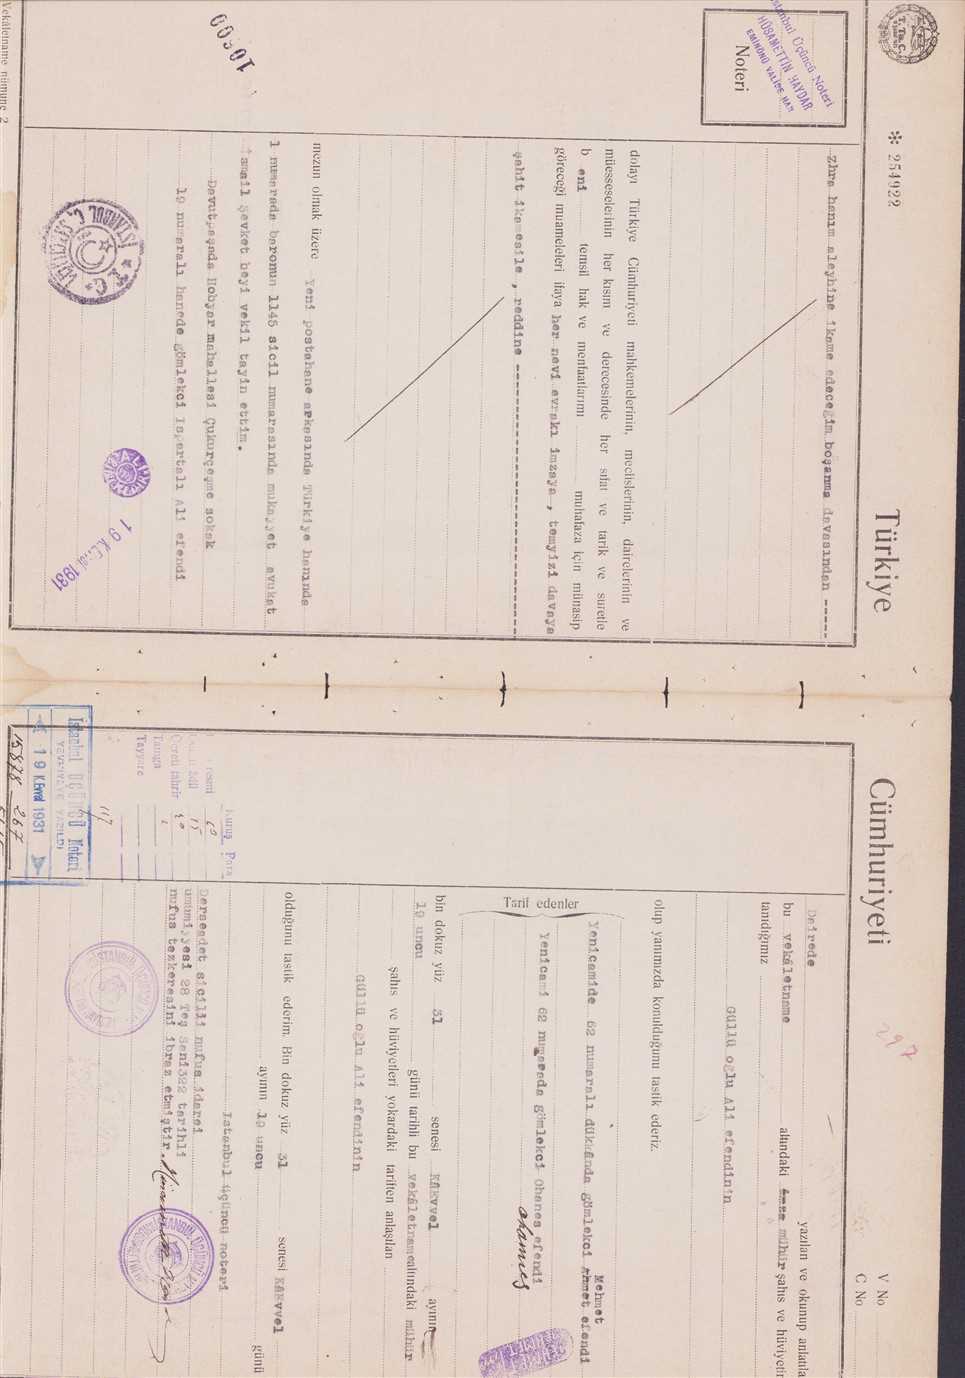 Türkiye Cümhuriyeti
T. C.
✻ 254922
İstanbul Üçüncü Noteri
HÜSAMETTİN HAYDAR
EMİNÖNÜ VALİDE HAN
Noteri
Zhra hanım aleyhine ikame edeceğim boşanma davasından ----
dolayı Türkiye Cümhuriyeti mahkemelerinin, meclislerinin, dairelerinin ve
müesseselerinin her kısım ve derecesinde her sıfat ve tarik ve suretle
b eni temsil hak ve menfaatlarımı muhafaza için münasip
göreceği muameleleri ifaya her nevi evrakı imzaya , temyizi davaya
şahit ikamesile , reddine
mezun olmak üzere Yeni postahane arkasında Türkiye hanında
1 numarada baronun 1145 sicil numarasında mukayyet avukat
İsmail Şevket beyi vekil tayin ettim.
Davutpaşada Hobyar mahallesi Çukurçeşme sokak
19 numaralı hanede gömlekci Ispartalı Ali efendi
19 K.Evvel 1931
10900
Vekâletname nümune 2
297
V No
C No
Dairede yazılan ve okunup anlatıla
bu vekâletname altındaki imza mühür şahıs ve hüviyetin
tanıdığımız
Güllü oğlu Ali efendinin
olup yanımızda konulduğunu tastik ederiz.
Tarif edenler
Mehmet
Yenicamide 62 numaralı dükkânda gömlekci Ahmet efendi
Yenicami 62 numarada gömlekci Ohanes efendi
bin dokuz yüz 31 senesi KâEvvel ayının
19 uncu günü tarihli bu vekâletname altındaki mühür
şahıs ve hüviyetleri yokardaki tariften anlaşılan
Güllü oğlu Ali efendinin
olduğunu tastik ederim. Bin dokuz yüz 31 senesi KâEvvel
ayının 19 uncu günü
Istanbul üçüncü noteri
Derseadet sicilli nufus idarei
umumiyyesi 28 Teş Sani 322 tarihli
nufus tezkeresini ibraz etmiştir.
Kuruş Para
Ücreti tahrir
Tamga
Tayyare
117
İstanbul ÜÇÜNCÜ Noteri
YEVMİYEYE YAZILDI
19 K.Evvel 1931
15878 267